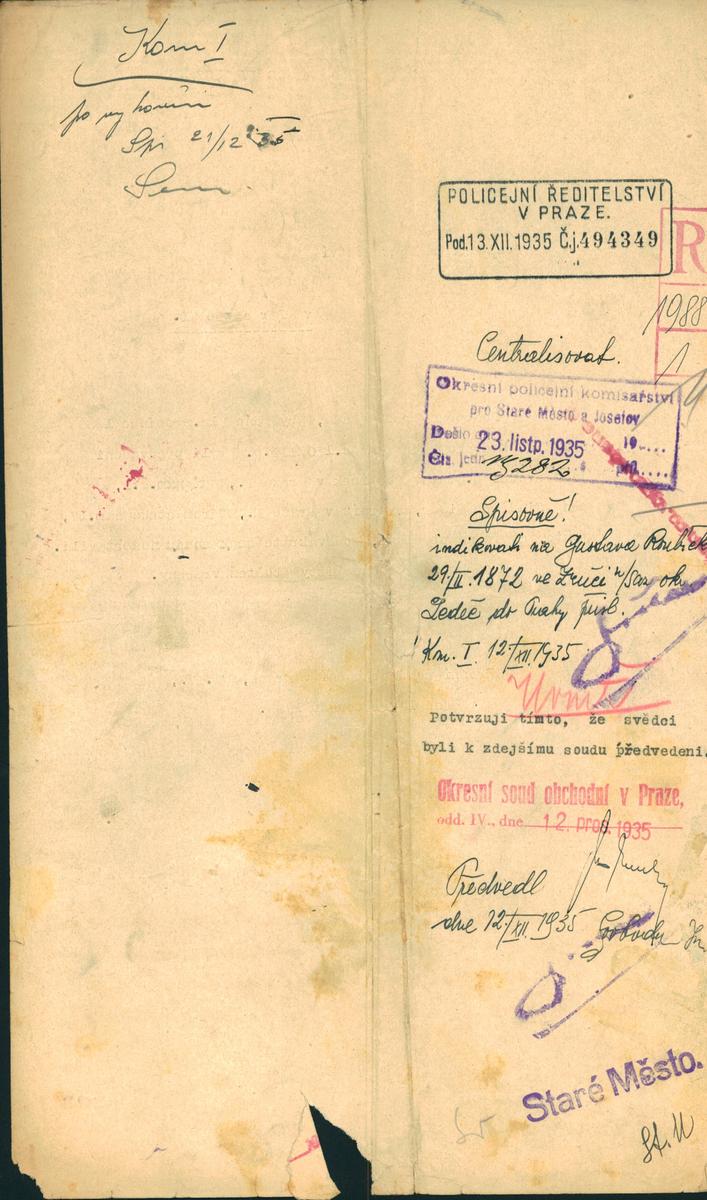 Kom I
po vyřízení
Spi 21/12 35
POLICEJNÍ ŘEDITELSTVÍ
V PRAZE.
Pod. 13.XII.1935 Č.j. 494349
R
1988
1
Centralisovat.
Okresní policejní komisařství
pro Staré Město a Josefov
Došlo 23. listp. 1935 19....
Čís. jedn. 15282 příl....
Spisovně!
indikovati na Gustava Roubíčk
29/II. 1872 ve Zruči n/Saz okr.
Ledeč do Prahy přísl.
Km. I. 12/XII. 1935
Potvrzuji tímto, že svědci
byli k zdejšímu soudu předvedeni.
Okresní soud obchodní v Praze,
odd. IV., dne 12. pros. 1935
Předvedl
dne 12/XII. 1935 Svoboda
Staré Město.
St. M